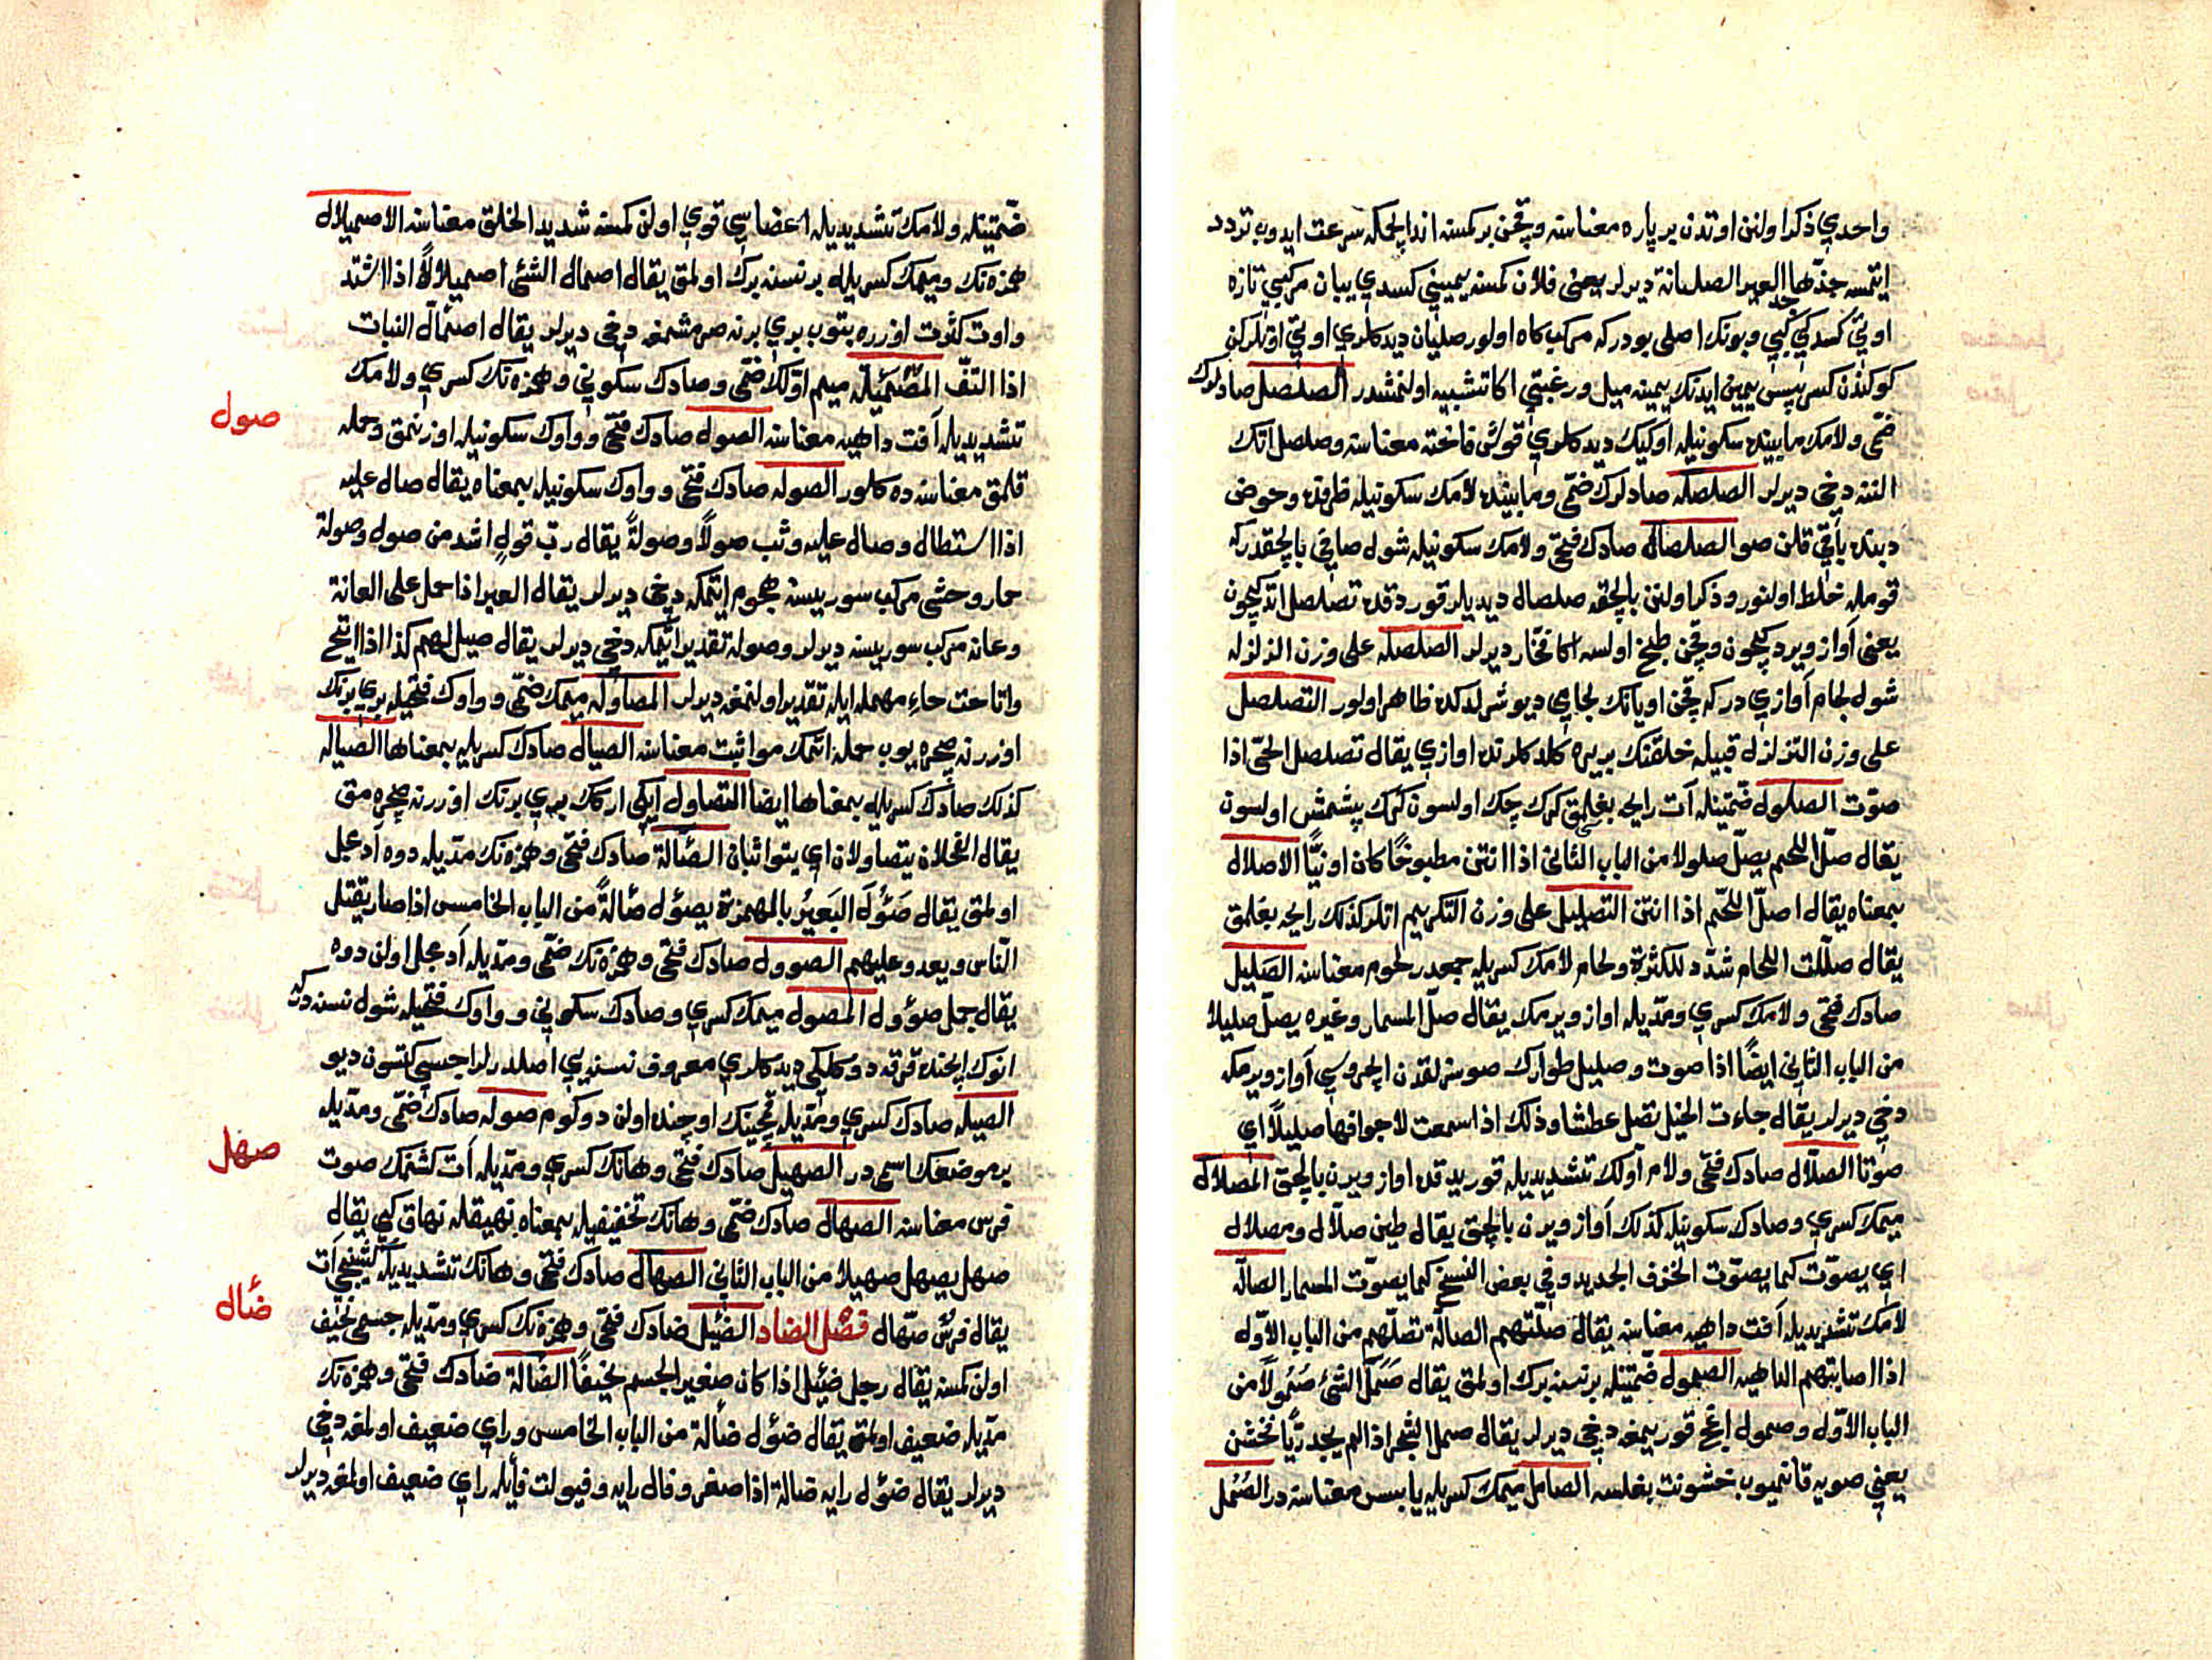 واحدي ذكر اولنن اوتدن بر پاره معناسنه وقچن بر كمسنه اندايچمكه سرعت ايدوب تردد
ايتمسه جذّها العير الصليانة ديرلر يعنى فلان كمسنه يميني كسدي يبان مركبي تازه
اوتي كسدكي كبي وبونك اصلى بودركه مركب كاه اولور صليان ديدكلري اوتي اوتلركن
كوكندن كسر پس يمين ايدنك يمينه ميل ورغبتي اكا تشبيه اولنمشدر الصلصل صادلرك
ضمّى ولامك مابينده سكونيله اوكيك ديدكلري قوش فاخته معناسنه وصلصل اتك
النه دخي ديرلر الصلصله صادلرك ضمّى ومابينده لامك سكونيله ظرفده وحوض
دبنده باقي قلن صو الصلصال صادك فتحى ولامك سكونيله شول صافي بالچقدركه
قومله خلط اولنور وذكر اولنن بالچقه صلصال ديديلر قوردقده تصلصل اتدكيچون
يعنى آواز ويردكيچون وقچن طبخ اولسه اكا فخّار ديرلر الصلصله على وزن الزلزله
شول لجام آوازي دركه قچن اويانك لجامي ديو شرلدكده ظاهر اولور التصلصل
على وزن التزلزل قبيله خلقنك بريره كلدكلرنده اوازي يقال تصلصل الحيّ اذا
صوّت الصلول ضمّتينله ات رايحه بغلمق كرك چك اولسون كرك پيشمش اولسون
يقال صلّ اللحم يصلّ صلولا من الباب الثانى اذا انتن مطبوخًا كان او نيًّا الاصلال
بمعناه يقال اصلّ اللحم اذا انتن التصليل على وزن التكريم اتلر كذلك رايحه بغلمق
يقال صلّلت اللحام شدّد للكثرة ولحام لامك كسريله جمعدر لحوم معناسنه الصليل
صادك فتحى ولامك كسري ومدّيله اواز ويرمك يقال صلّ المسمار وغيره يصلّ صليلا
من الباب الثاني ايضًا اذا صوت وصليل طوارك صوسزلقدن ايچروسي آواز ويرمكه
دخي ديرلر يقال جاءت الخيل تصل عطشا وذلك اذا سمعت لاجوافها صليلًا اي
صوتا الصلّال صادك فتحى ولام اولك تشديديله قوريدقده اواز ويرن بالچق المصلال
ميمك كسري وصادك سكونيله كذلك آواز ويرن بالچق يقال طين صلّال ومصلال
اي يصوّت كما يصوّت الخزف الجديد وفي بعض النسخ كما يصوّت المسمار الصالّه
لامك تشديديله آفت داهيه معناسنه يقال صلّتهم الصالّة تصلّهم من الباب الاوّل
اذا اصابتهم الداهيه الصمول ضمّتينله بر نسنه برك اولمق يقال صَمَلَ الشئ صُمُولاً من
الباب الاوّل وصمول اغج قوريمغه دخي ديرلر يقال صمل الشجر اذا لم يجد ريًّا فخشن
يعني صويه قانميوب خشونت بغلسه الصامل ميمك كسريله يابس معناسنه در الصُمُل
ضمّتينله ولامك تشديديله اعضاسي قوي اولن كمسنه شديد الخلق معناسنه الاصميلال
همزه نك وميمك كسريله بر نسنه برك اولمق يقال اصمال الشئ اصميلالاً اذا اشتد
واوت كثرت اوزره بتوب بري برنه صرمشمغه دخى ديرلر يقال اصمألّ النبات
اذا التفّ المصمئلّه ميم اولك ضمّى وصادك سكوني وهمزه نك كسري ولامك
تشديديله آفت داهيه معناسنه الصول صادك فتحى وواوك سكونيله اوزنمق وحمله
قلمق معناسنه ده كلور الصوله صادك فتحى وواوك سكونيله بمعناه يقال صال عليه
اذا استطال وصال عليه وثب صولاً وصولةً يقال ربّ قولٍ اشد من صول وصولة
حمار وحشى مركب سوريسنه هجوم ايتمكه دخى ديرلر يقال العير اذا حمل على العانة
وعانه مركب سوريسنه ديرلر وصوله تقدير ايتمكه دخي ديرلر يقال صيل لهم كذا اذا اتيح
واتاحت حاء مهمله ايله تقدير اولنمغه ديرلر المصاوله ميمك ضمّى وواوك فتحيله بري برنك
اوزرنه صچره يوب حمله اتمك مواثبت معناسنه الصيال صادك كسريله بمعناها الصياله
كذلك صادك كسريله بمعناها ايضا التصاول ايكي اركك بري برنك اوزرنه صچره مق
يقال الفحلان يتصاولان اي يتواثبان الصآلة صادك فتحى وهمزه نك مدّيله دوه آدمجل
اولمق يقال صَئُولَ البَعيرُ بالهمزة يصئول صآلةً من الباب الخامس اذا صار يقتل
النّاس ويعدو عليهم الصوول صادك فتحى وهمزه نك ضمّى ومدّيله آدمجل اولن دوه
يقال جمل صؤول المصول ميمك كسري وصادك سكوني وواوك فتحيله شول نسنه دركه
انوك ايچنده قرقه دوكلكي ديدكلري معروف نسنه يي اصلدرلر اجيسي كتسون ديو
الصيله صادك كسري ومدّيله قچينك اوجنده اولن دوكوم صوله صادك ضمّى ومدّيله
بر موضعك اسمى در الصهيل صادك فتحى وهانك كسري ومدّيله آت كشنمك صوت
فرس معناسنه الصهال صادك ضمّى وهانك تخفيفيله بمعناه نهيقله نهاق كبي يقال
صهل يصهل صهيلا من الباب الثاني الصهال صادك فتحى وهانك تشديديله كشنيجي آت
يقال فرسٌ صهّال فصل الضاد الضئيل ضادك فتحى وهمزه نك كسري ومدّيله جسمى نحيف
اولن كمسنه يقال رجل ضئيل اذا كان صغير الجسم نحيفًا الضالة ضادك فتحى وهمزه نك
مدّيله ضعيف اولمق يقال ضؤل ضألة من الباب الخامس وراي ضعيف اولمغه دخي
ديرلر يقال ضؤل رايه ضالة اذا صغر وفال رايه وفيولت فأيله راي ضعيف اولمغه ديرلر
صول
صهل
ضأل